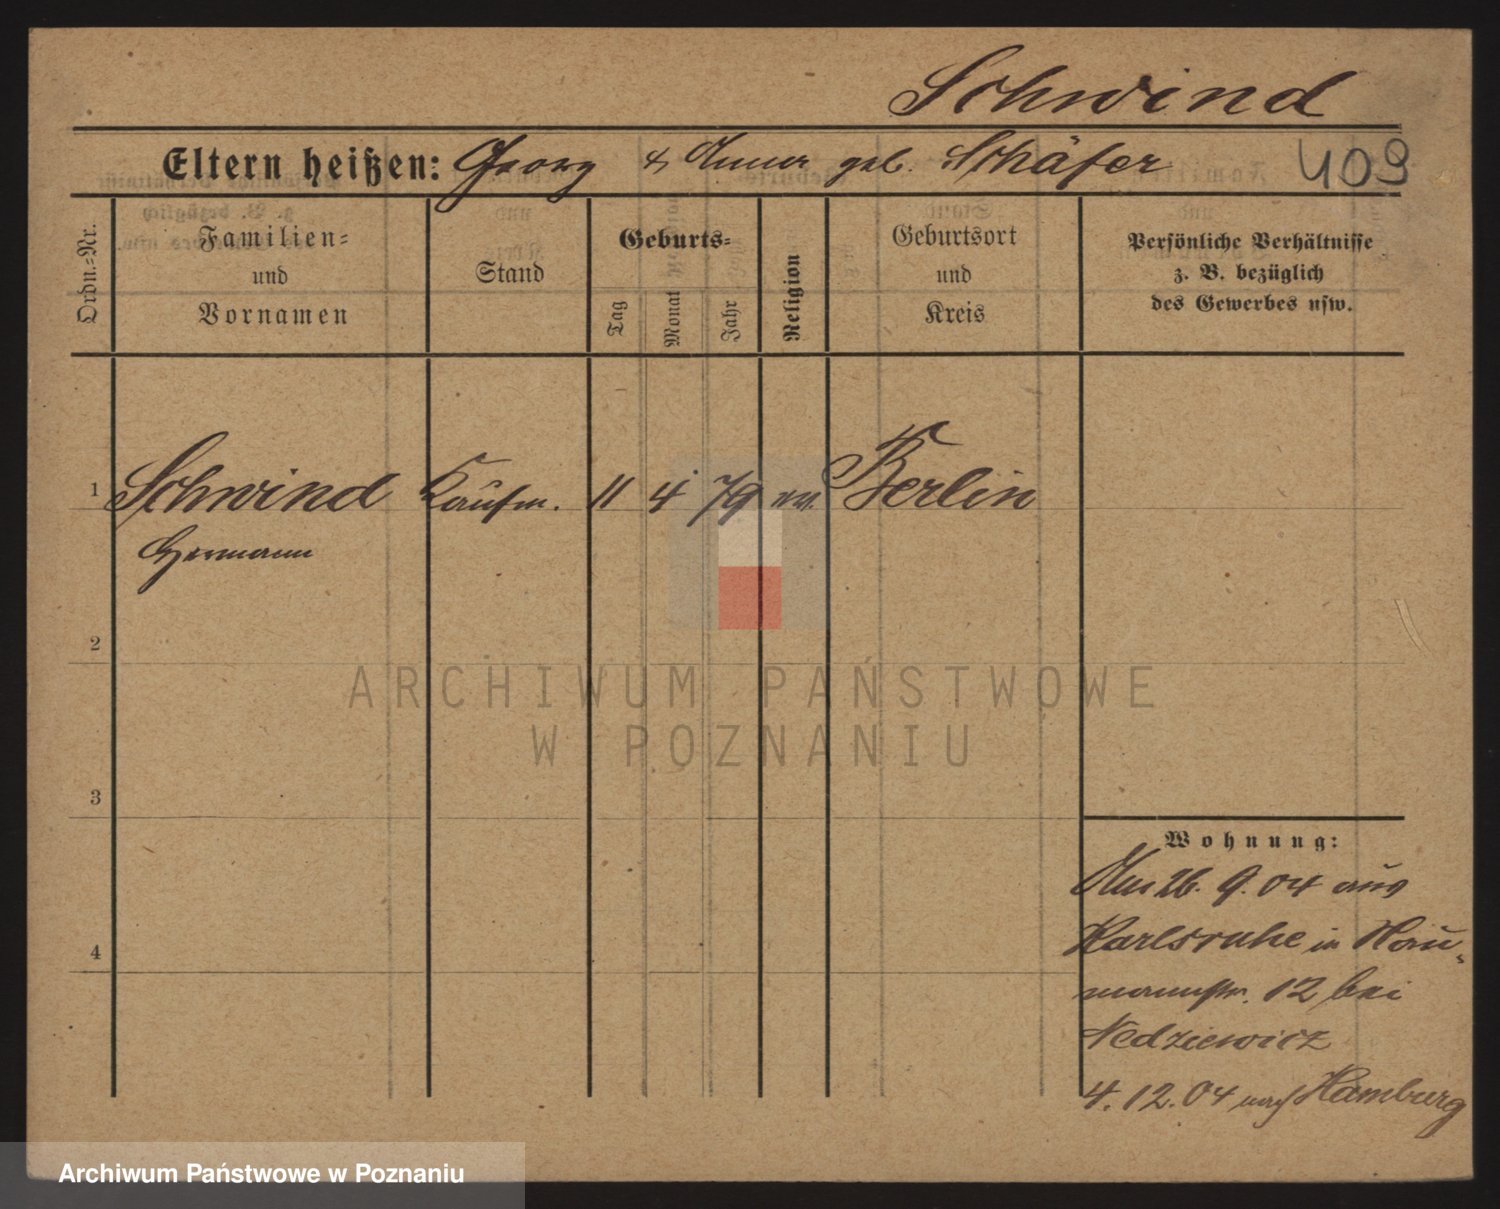 Schwind
Eltern heißen: Georg & Anna geb. Schäfer 409
Ordn.-Nr.
Familien-
und
Vornamen
Stand
Geburts-
Tag
Monat
Jahr
Religion
Geburtsort
und
Kreis
Persönliche Verhältnisse
z. B. bezüglich
des Gewerbes usw.
1 Schwind Kaufm. 11 4 79 ev. Berlin
Hermann
2
3
4
Wohnung:
Am 26. 9. 04 aus
Karlsruhe in Nau-
mannstr. 12 bei
Nedziewicz
4. 12. 04 nach Hamburg
ARCHIWUM PAŃSTWOWE
W POZNANIU
Archiwum Państwowe w Poznaniu